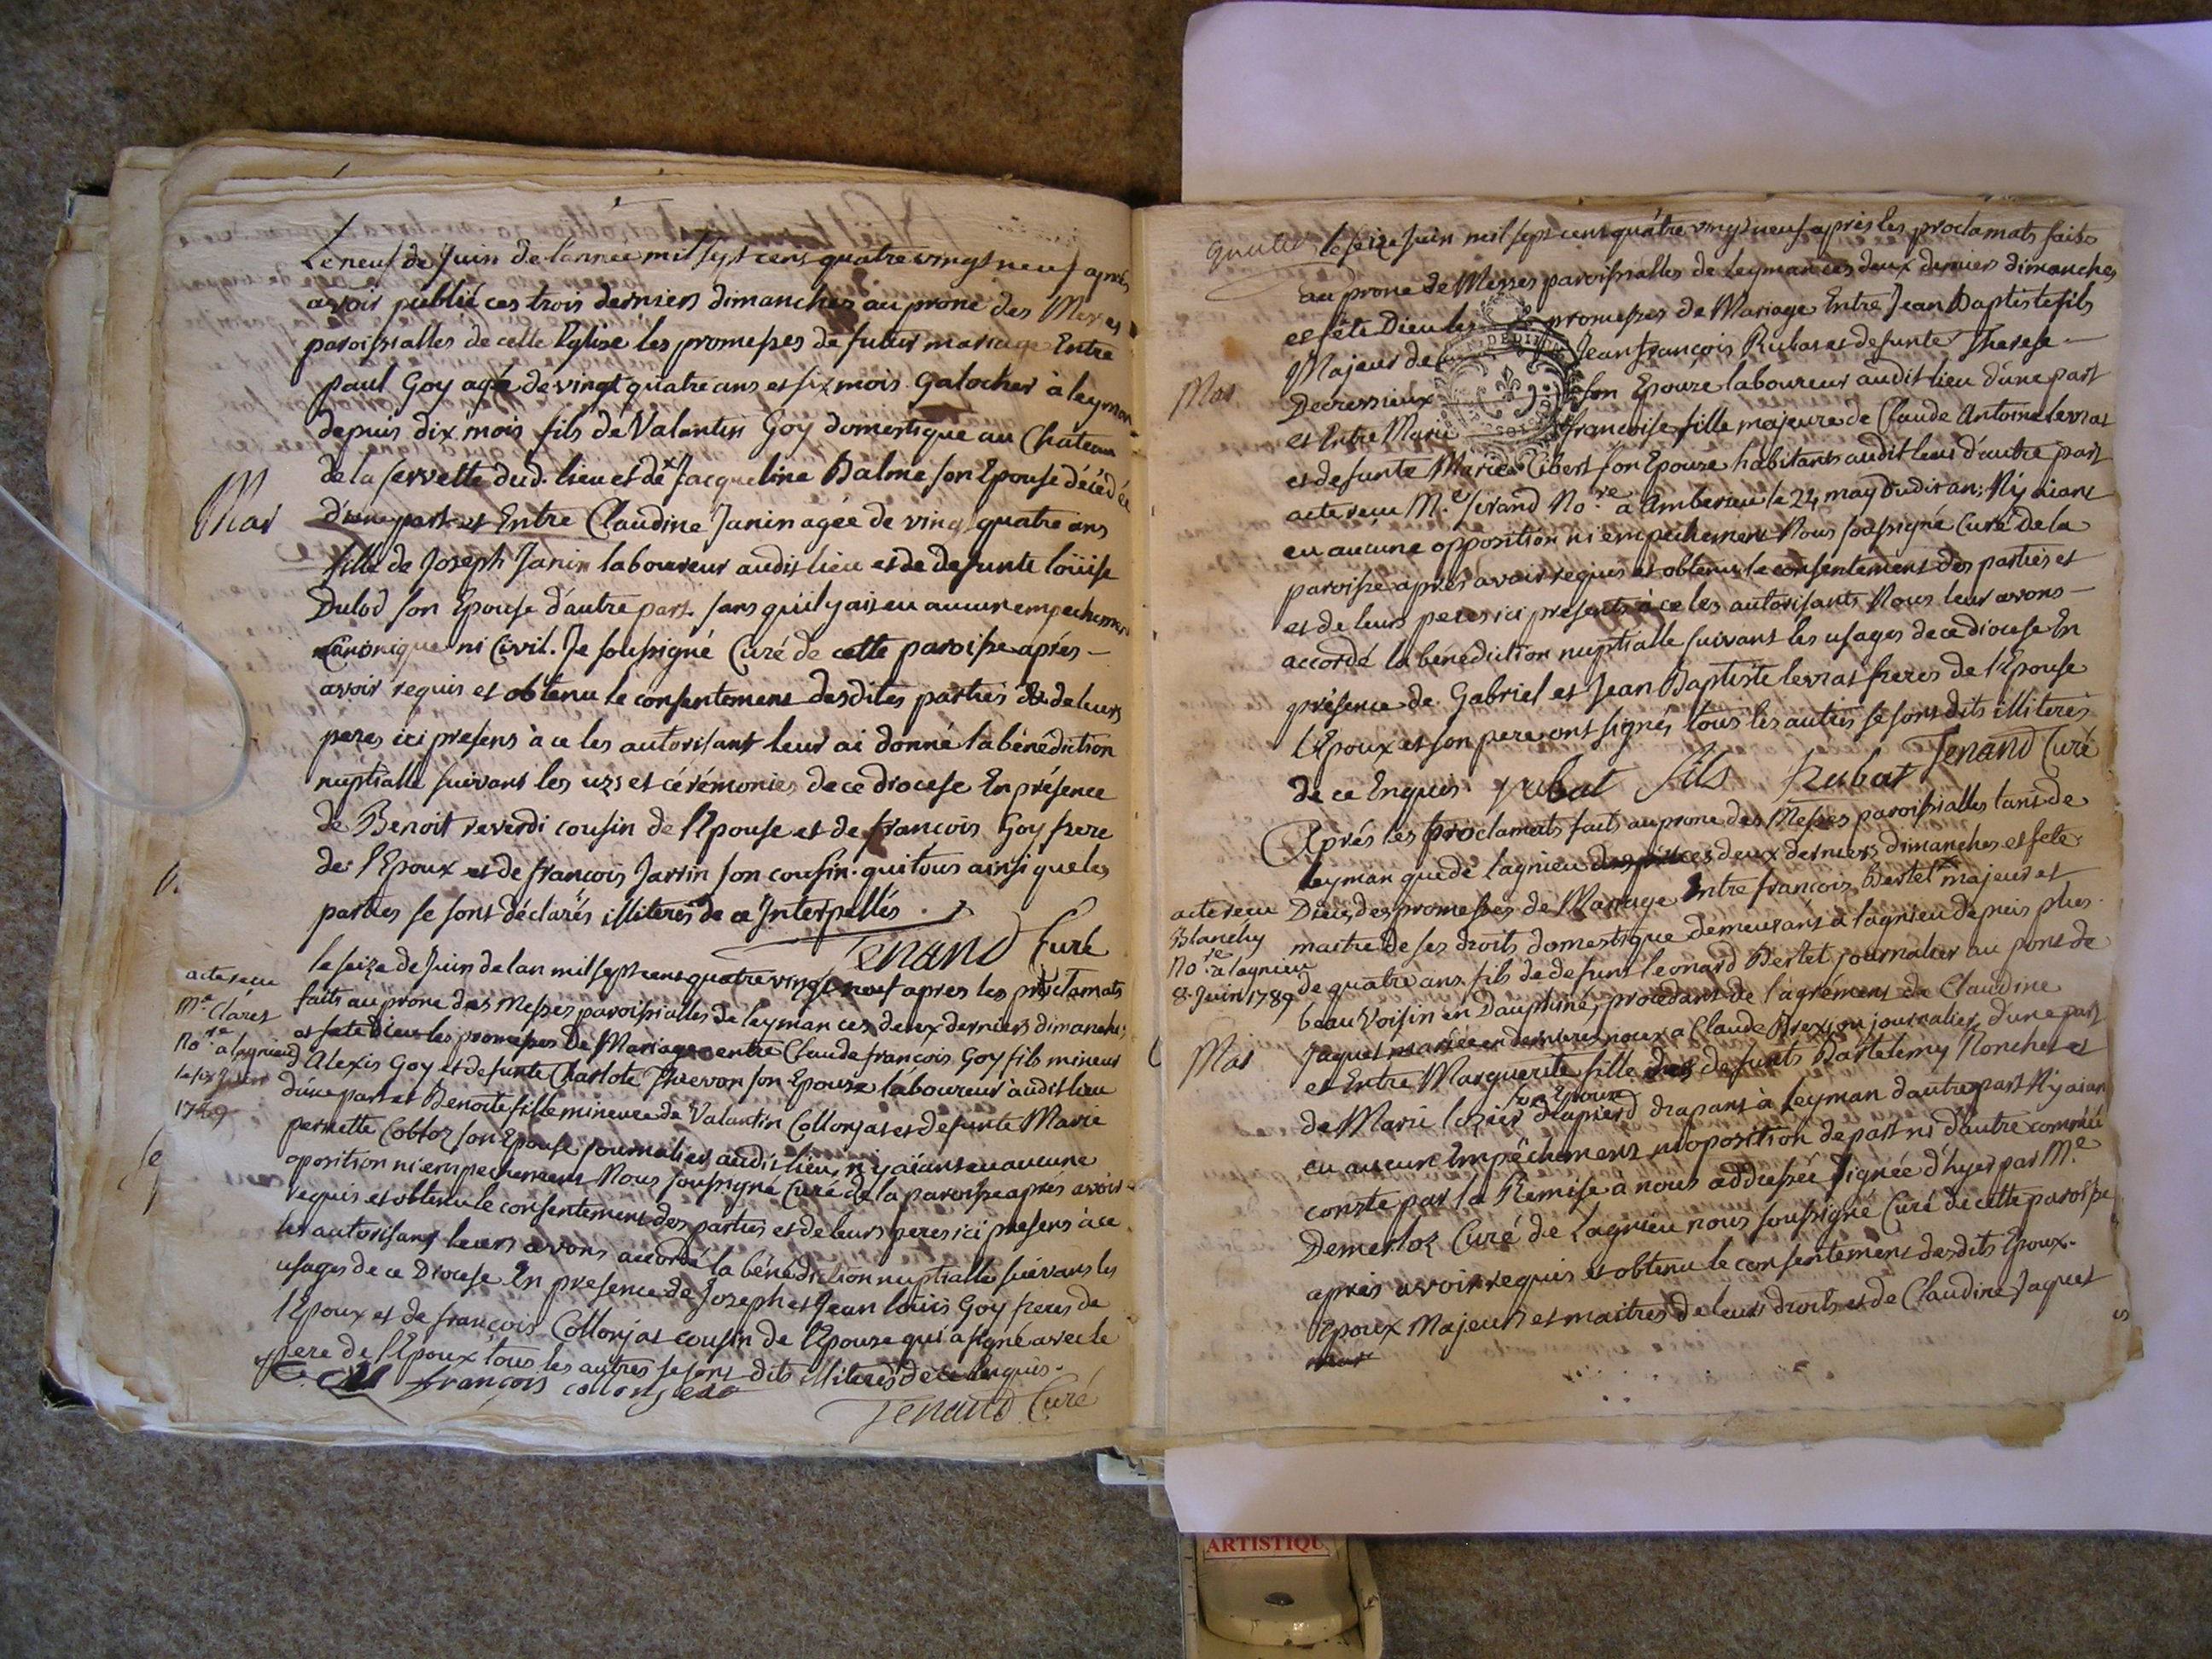 Le neuf de Juin de lannee mil sept cens quatre vingt neuf apres
avoir publié ces trois derniers dimanches au prone des Messes
paroissialles de cette Eglise les promesses de futur mariage Entre
paul Goy agé de vingt quatre ans et six mois galocher à leyman
depuis dix mois fils de Valantin Goy domestique au Château
de la servette dud. lieu et de Jacqueline Balme son Epouse décédée
Mar
d'une part et Entre Claudine Janin agée de vingt quatre ans
fille de Joseph Janin laboureur audit lieu et de defunte loüise
Dulod son Epouse d'autre part. sans qu'il y ait eu aucun empechement
Canonique ni Civil. Je soussigné Curé de cette paroisse aprés
avoir requis et obtenu le consentement desdites parties & de leurs
peres ici presens à ce les autorisant leur ai donné la bénédiction
nuptialle suivant les uzs et cérémonies de ce diocese En présence
de Benoit reverdi cousin de l'Epouse et de françois Goy frere
de l'Epoux et de françois Jarrin son cousin. qui tous ainsi que les
parties se sont déclarés illiterés de ce Interpellés.
Tenand Curé
le seize de Juin de lan mil sept cens quatre vingt neuf apres les proclamats
acte recu
Me Claret
Nore a lagnieu
le six Juin
1789
faits au prone des Messes paroissialles de leyman ces deux derniers dimanches
et fete dieu les promesses De Mariage entre Claude françois Goy fils mineur
d'Alexis Goy et defunte Charlote Thievon son Epouze laboureur audit lieu
d'une part et Benoite fille mineure de Valantin Collonjat et defunte Marie
pernette Cobloz son Epouse journalier audit lieu, n'y aïant eu aucune
oposition ni empechement Nous soussigné Curé de la paroisse apres avoir
requis et obtenu le consentement des parties et de leurs peres ici presens à ce
les autorisant leurs avons accordé la bénédiction nuptialle suivant les
usages de ce Diocese En presence de Joseph et Jean louis Goy freres de
l'Epoux et de françois Collonjat cousin de l'Epouze qui a signé avec le
pere de l'Epoux tous les autres se sont dits illiterés de ce Enquis.
françois
Tenand Curé
le seize Juin mil sept cens quatre vingt neuf après les proclamats faits
au prone de Messes paroissialles de leyman ces deux derniers dimanches
et fête Dieu les promesses de Mariage Entre Jean Baptiste fils
Majeur de Jean françois Rubat et defunte Therese
Mar
Decressieux son Epouze laboureur audit lieu d'une part
et Entre Marie francoise fille majeure de Claude Antoine levrat
et defunte Marie Cibert son Epouze habitants audit lieu d'autre part
acte recu Me. Sirand Nore. a Amberieu le 24 may dudit an; N'y aiant
eu aucune opposition ni empechement Nous soussigné Curé de la
paroisse après avoir requis et obtenu le consentement des parties et
et de leurs peres ici presents à ce les autorisants Nous leur avons
accordé la bénédiction nuptialle suivant les usages de ce diocese En
présence de Gabriel et Jean Baptiste levrat freres de l'Epouse
l'Epoux et son pere ont signés, tous les autres se sont dits illiterés
de ce Enquis. rubat fils rubat Tenand Curé
Aprés les proclamats faits au prone des Messes paroissialles tant de
leyman que de lagnieu ces deux derniers dimanches et fete
acte recu
Blanchy
Nore à lagnieu
8. Juin 1789
Dieu, des promesses de Mariage Entre françois Bertet majeur et
maitre de ses droits domestique demeurant à lagnieu depuis plus
de quatre ans. fils de defunt leonard Bertet journalier au pont de
beauvoisin en Dauphiné, procédant de l'agrément de Claudine
Mar
Jaquet mariée en dernieres noux a Claude Brexion journalier d'une part
et Entre Marguerite fille des defunts Bartelemy Ronchet et
son Epouze
de Marie lozier drapant à leyman d'autre part N'y aian
eu aucun Empêchement ni oposition de part ni d'autre comm'il
conste par la Remise à nous addressée signée d'hyer par Me
Demerloz Curé de Lagnieu nous soussigné Curé de cette paroisse
aprés avoir requis et obtenu le consentement desdits Epoux
Epoux Majeurs et maitres de leurs droits et de Claudine Jaquet
ARTISTIQU